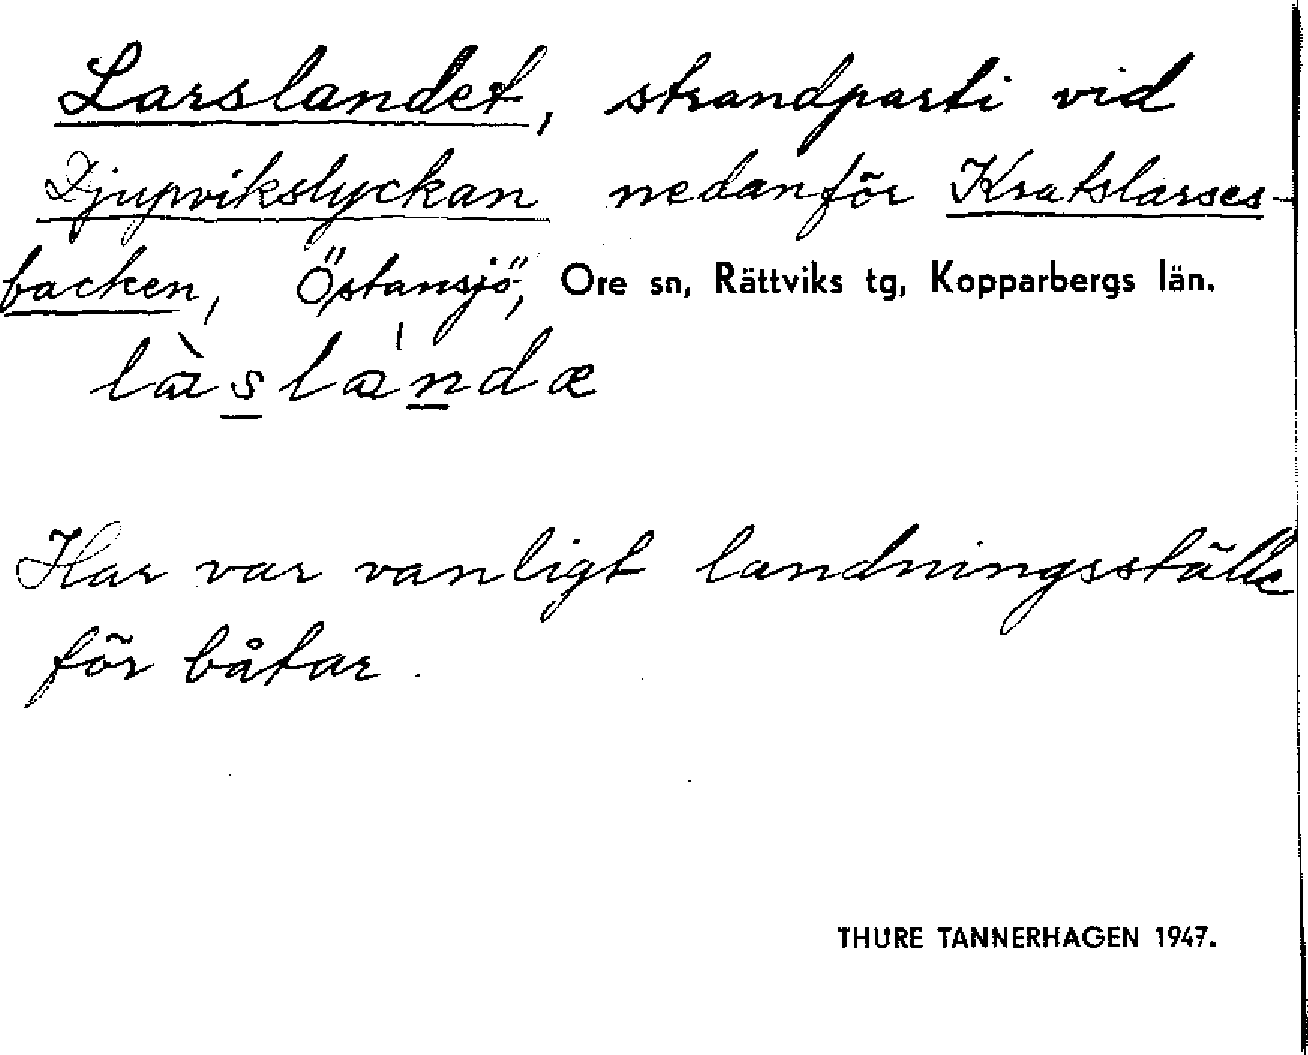 Larslandet, strandparti vid
Djupvikslyckan nedanför Kratslarses-
backen, Östansjö, Ore sn, Rättviks tg, Kopparbergs län.
Här var vanligt landningsställe
för båtar.
THURE TANNERHAGEN 1947.